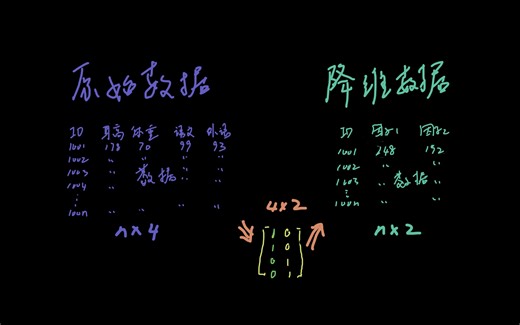 原始数据
降维数据
ID 身高 体重 语文 外语
1001 178 70 99 93
1002 " " " "
1003 " 数据 " "
1004 " " "
⋮
100n " " " "
n×4
ID 因子1 因子2
1001 248 192
1002 " "
1003 " 数据 "
⋮
100n " "
n×2
4×2
1 0
1 0
0 1
0 1